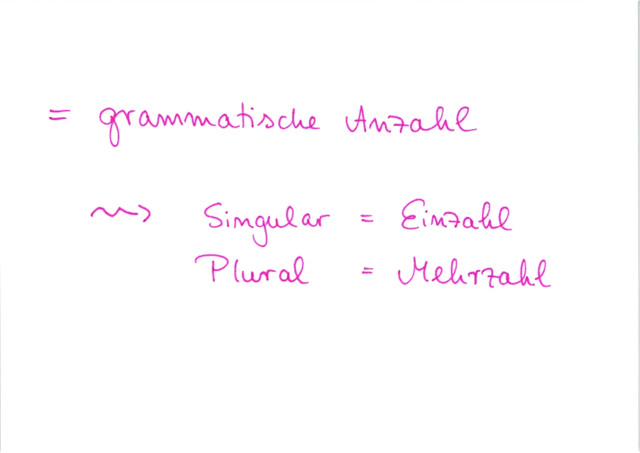 = grammatische Anzahl
⇝ Singular = Einzahl
Plural = Mehrzahl